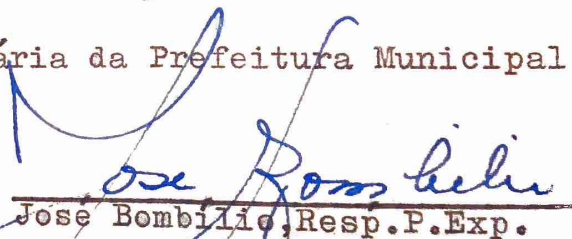 ária da Prefeitura Municipal
José Bombilio
José Bombílio,Resp.P.Exp.